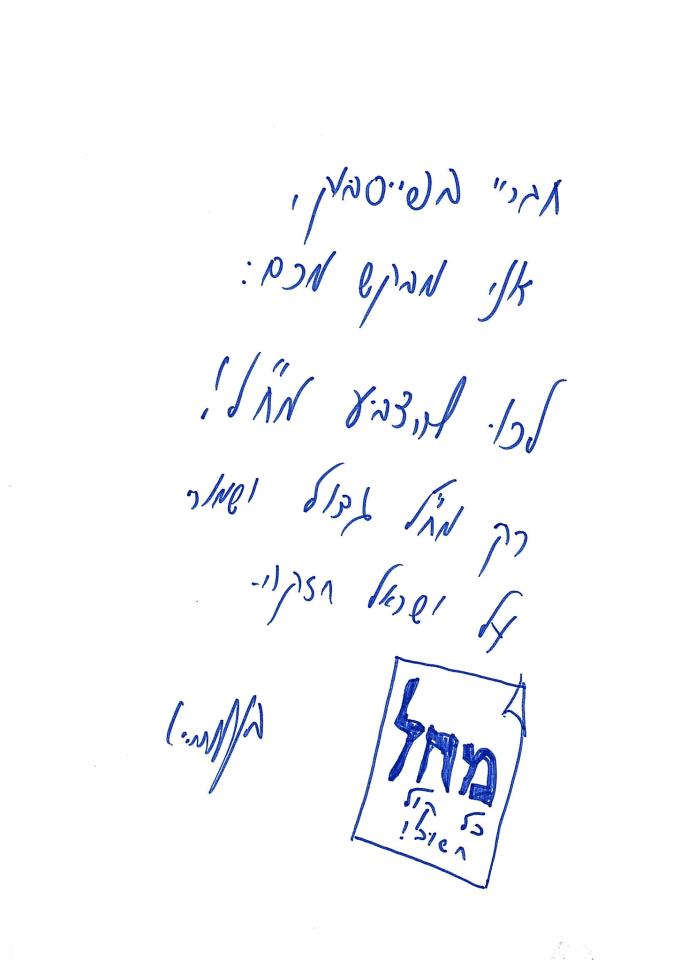 חבריי בפייסבוק,
אני מבקש מכם:
לכו להצביע מח"ל!
רק מח"ל גדול ישמור
על ישראל חזקה.
מחל
כל קול
חשוב!